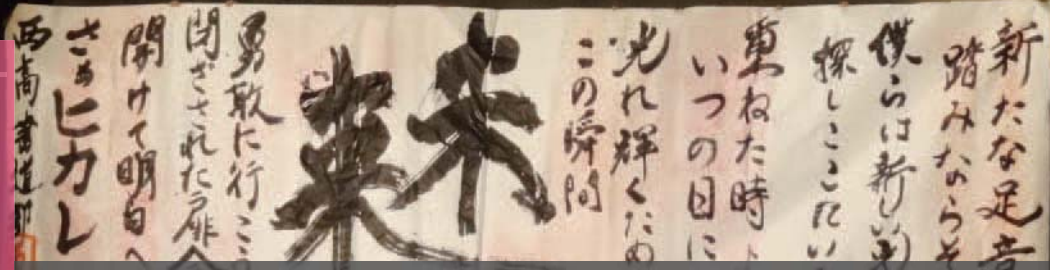 新たな足音
踏みならそ
僕らは新しい
探しにこたい
重ねた時
いつの日に
光れ輝くため
この瞬間
未来
勇敢に行こう
閉ざされた扉
開けて明日へ
さぁヒカレ
西高書道部